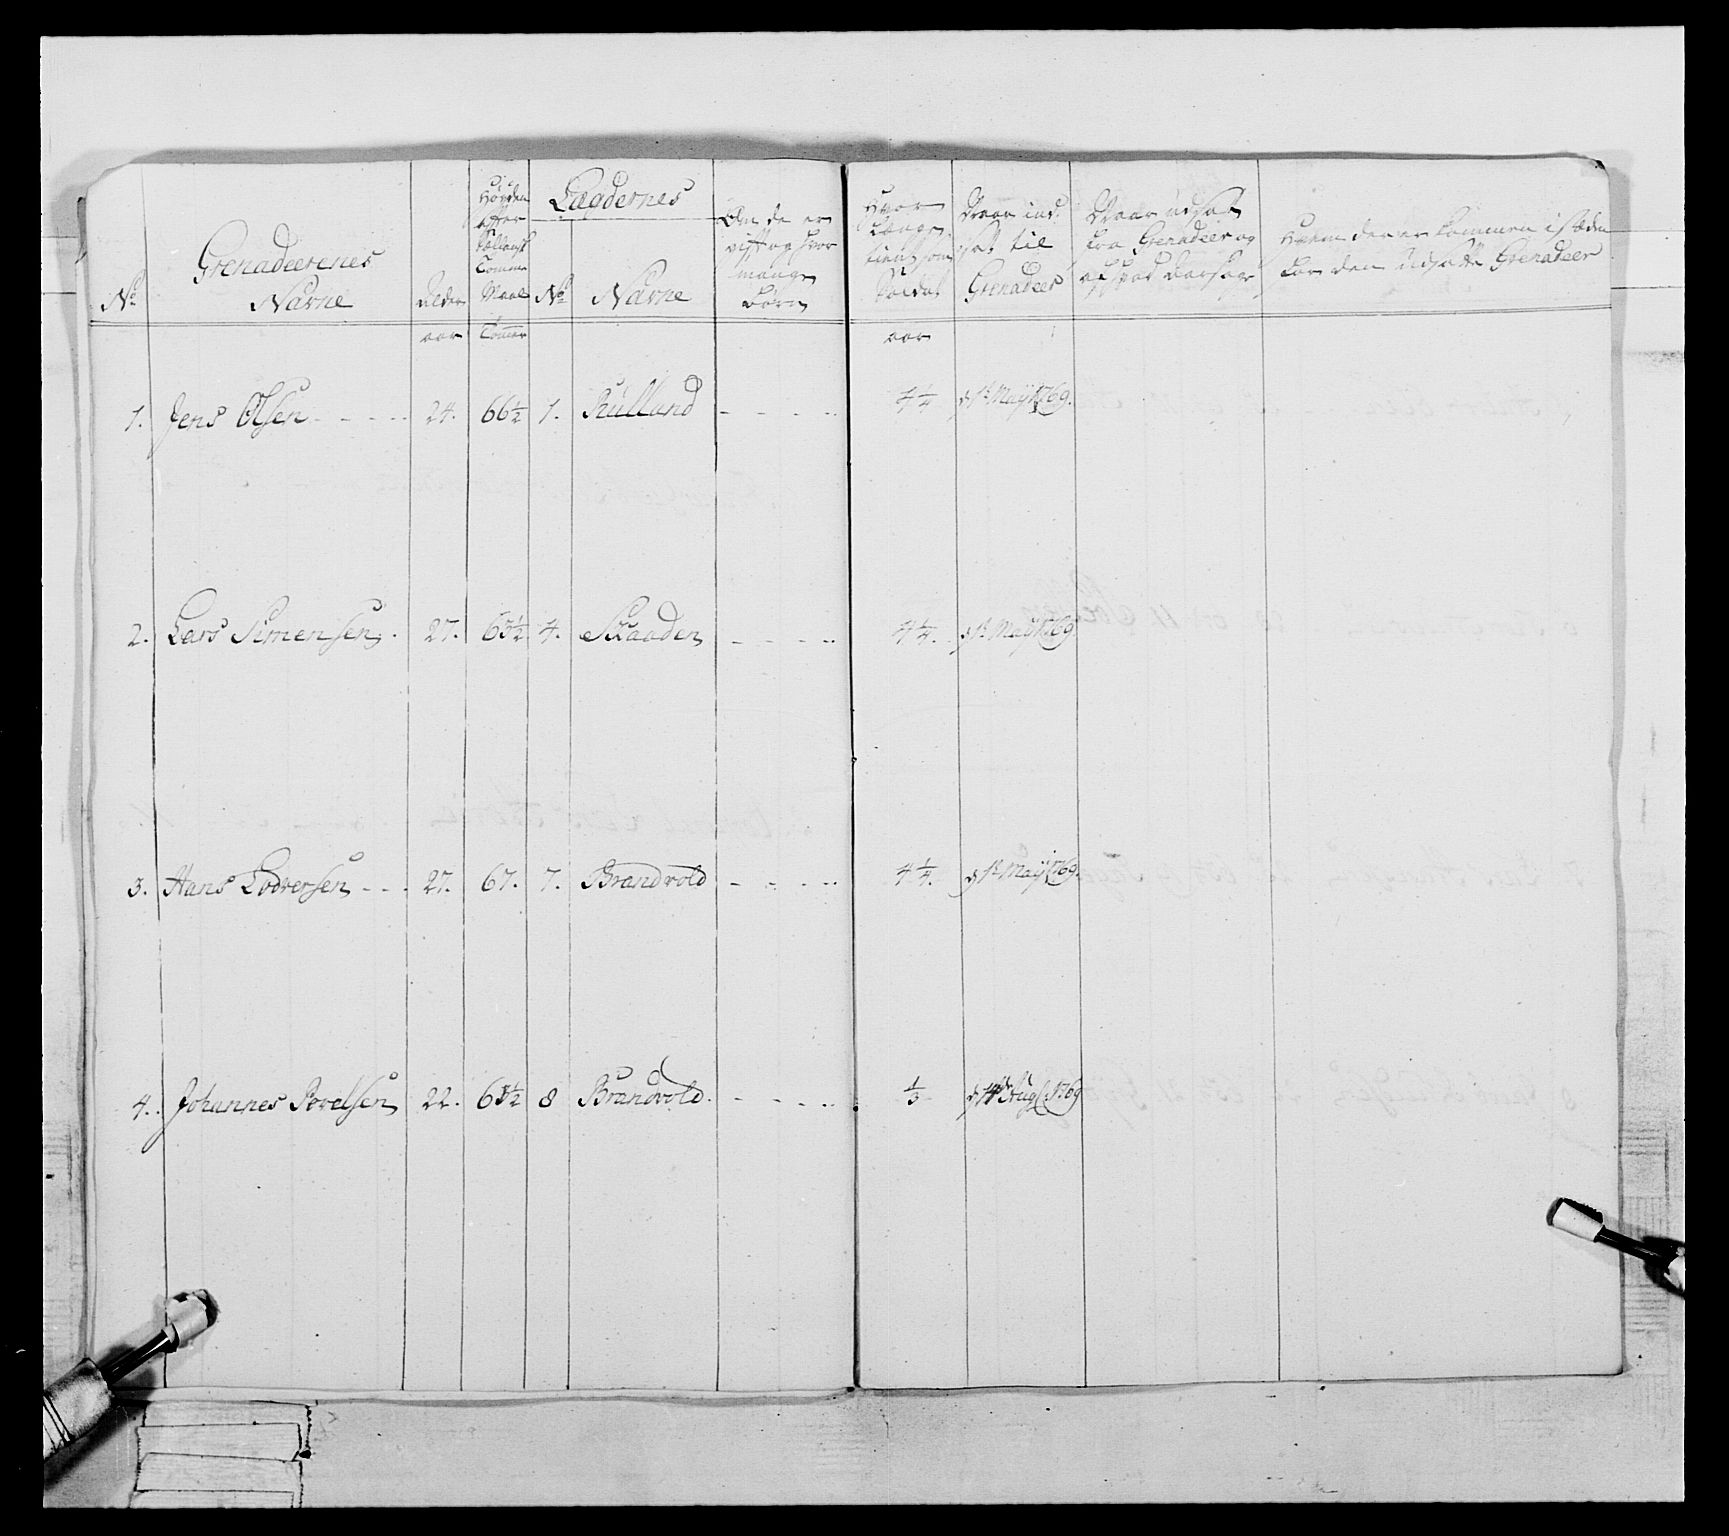 No
Grenadeerenes
Navne
Alder
Høyden
efter
Sællandsk
Tomme
Maal
Lægdernes
No
Navne
Om de er
gift og hvor
mange
børn
Hvor
længe
tient som
Soldat
Naar ind-
sat til
Grenadeer
Naar udsat
fra Grenadeer og
af hvad Aarsage
Hvem der er kommen i stæden
for den udsatte Grenadeer
aar
Tommer
aar
1. Jens Olsen - - - - 24. 66½ 1. Rulland - - - - 4¼ d 1te Maÿ 1769.
2. Lars Simensen. 27. 63½ 4. Skaaden - - - - 4¼. d 1te Maÿ 1769.
3. Hans Lodversen - - - 27. 67. 7. Brandvold - - - - 4¼. d 1te Maÿ 1769.
4. Johannes Povelsen 22. 63½ 8 Brandvold. - - - - ⅓ d 14de Aug 1769